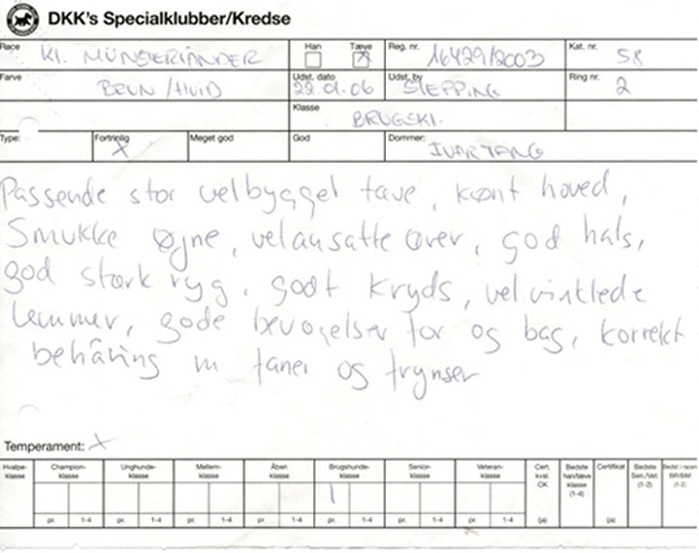 DKK's Specialklubber/Kredse
Race Kl. MÜNSTERLÄNDER Han Tæve X Reg. nr. 16429/2003 Kat. nr. 58
Farve BRUN/HVID Udst. dato 22.01.06 Udst. by STEPPING Ring nr. 2
Klasse BRUGSKL.
Type: Fortrinlig X Meget god God Dommer: IVAR TANG
Passende stor velbygget tæve, kønt hoved,
Smukke øjne, velansatte ører, god hals,
god stærk ryg, godt kryds, velvinklede
lemmer, gode bevægelser for og bag, korrekt
behåring m faner og frynser
Temperament: X
Hvalpe-klasse Champion-klasse Unghunde-klasse Mellem-klasse Åben klasse Brugshunde-klasse Senior-klasse Veteran-klasse Cert. kval. CK Bedste han/tæve klasse (1-4) Certifikat Bedste Sen./Vet. (1-2) Bedst i racen BIR/BIM (1-2)
1
pr. 1-4 pr. 1-4 pr. 1-4 pr. 1-4 pr. 1-4 pr. 1-4 pr. 1-4 (ja) (ja)